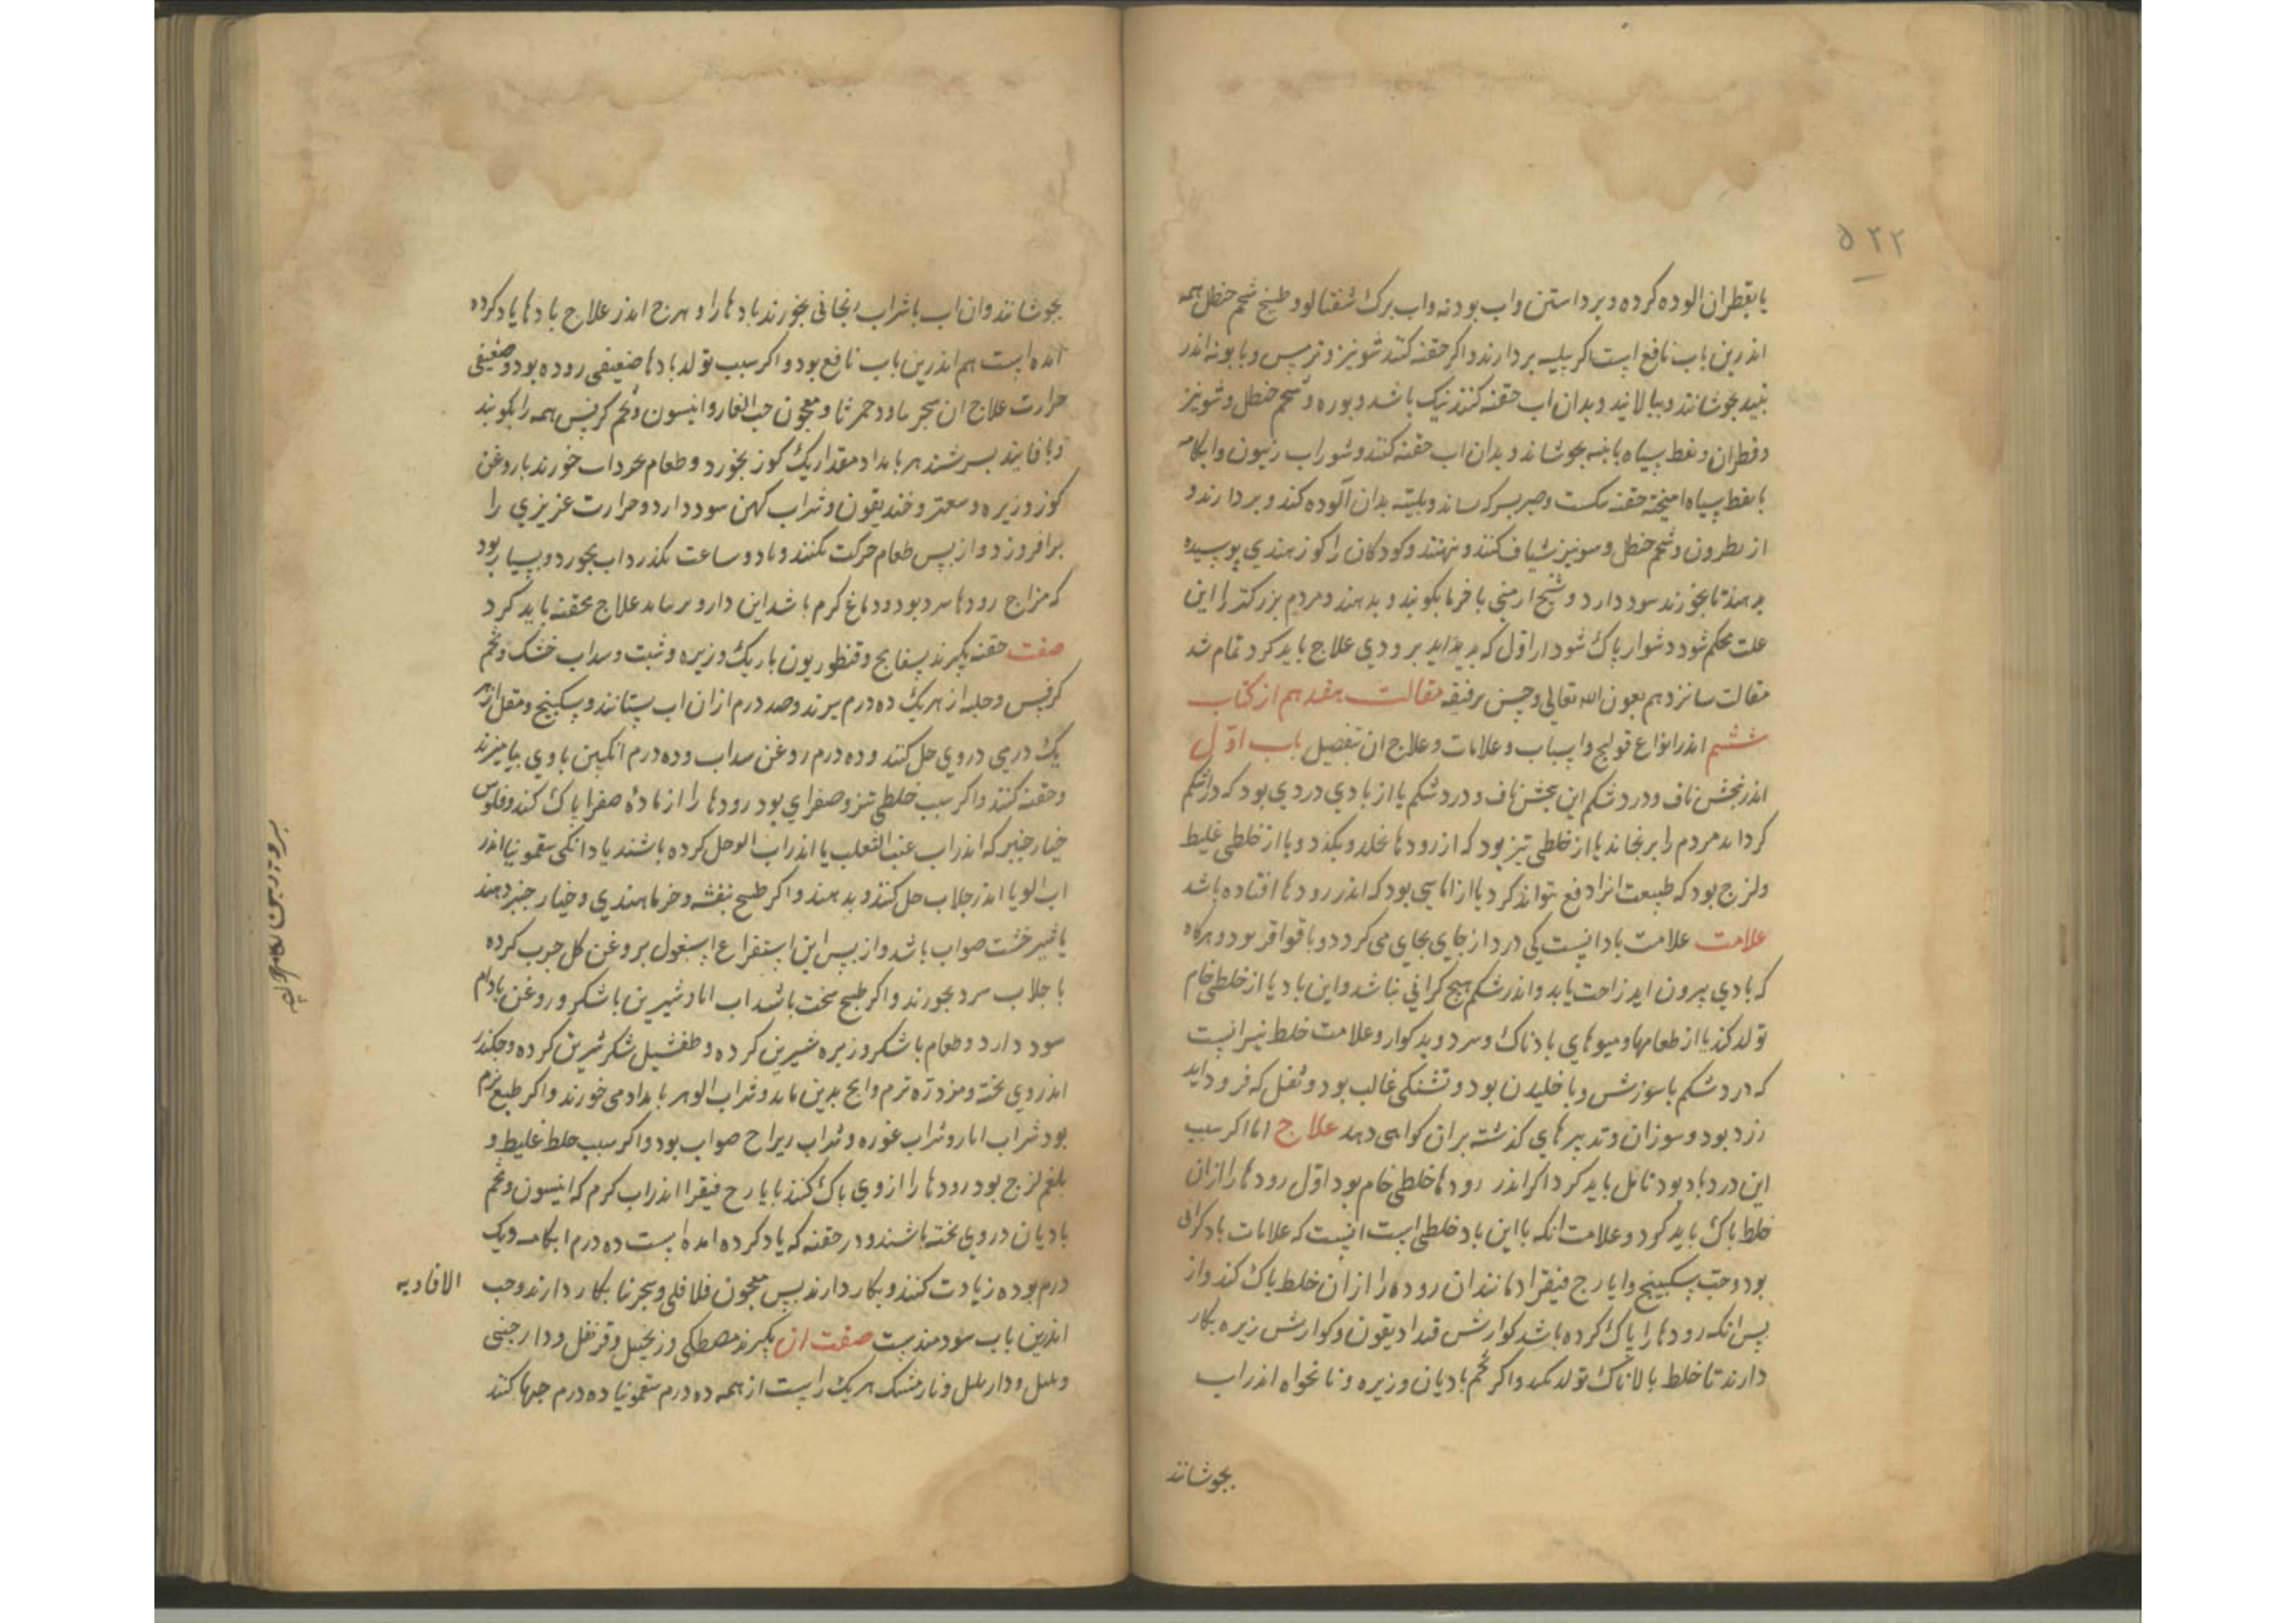 ۵۲۲
یا بقطران الوده کرده و برداستن واب بودنه واب برک شفتالو و طبیخ شحم حنظل همه
اندرین باب نافع است اکر بپلیته بردارند و اکر حقنه کنند شونیز و ترمس و بابونه اندر
نبید بجوشانند و ببالایند و بدان اب حقنه کنند نیک باشد و بوره و شحم حنظل و شونیز
و قطران و نفط سیاه بابنه بجوشاند و بدان اب حقنه کنند و شوراب زیتون و ابکامه
با نفط سیاه امیخته حقنه نیکست و صبر بسرکه بساند و بلیته بدان آلوده کند و بردارند و
از نطرون و شحم حنظل و مویز شیاف کنند و نهنند و کودکان را کوز هندی پوسیده
بدهند تا بخورند سود دارد و شیح ارمنی با خرما بکوبند و بدهند و مردم بزرکتر را این
علت محکم شود دشوار پاک شود از اول که بدیداید بزودی علاج باید کرد تمام شد
مقالت سانزدهم بعون الله تعالی و حسن توفیقه مقالت هفدهم از کتاب
ششم اندر انواع قولنج و اسباب و علامات و علاج ان بتفصیل باب اول
اندر بخش ناف و درد شکم این بخش ناف و درد شکم یا از بادی دردی بود که در شکم
کرداند مردم را برنجاند یا از خلطی تیز بود که از رودها بخلد و بکذد و یا از خلطی غلیظ
و لزج بود که طبیعت انرا دفع نتواند کرد یا از اماسی بود که اندر رودها افتاده باشد
علامت علامت باد انیست کی درد از جای بجای می کردد و با قواقر بود و هرکاه
که بادی بیرون اید راحت یابد و اندر شکم هیچ کرانی نباشد و این باد یا از خلطی خام
تولد کند یا از طعامها و میوهای بادناک و سرد و بد کوار و علامت خلط تیز انست
که درد شکم با سوزش و با خلیدن بود و تشنکی غالب بود و ثفل که فرود اید
زرد بود و سوزان و تدبیرهای کذشته بر ان کواهی دهد علاج اما اکر سبب
این درد باد بود تامل باید کرد اکر اندر رودها خلطی خام بود اول رودها را از ان
خلط پاک باید کرد و علامت انکه با این باد خلطی است انست که علامات باد کرانی
بود و حب سکبینج و ایارج فیقرا دمانند ان روده را از ان خلط پاک کند و از
پس انکه رودها را پاک کرده باشد کوارش قندادیقون و کوارش زیره بکار
دارند تا خلط با لاناک تولد نکند و اکر تخم بادیان و زیره و نانخواه اندر اب
بجوشانند
بجوشانند و ان اب با شراب ریحانی بخورند بادها را و هرج اندر علاج بادها یاد کرده
امده است هم اندرین باب نافع بود و اکر سبب تولد بادها ضعیفی روده بود و ضعیفی
حرارت علاج ان سجرینا و دحمرثا و معجون حب الغار و انیسون و تخم کرفس همه را بکوبند
و با فانید بسرشند هر بامداد مقدار یک کوز بخورد و طعام نخوداب خورند با روغن
کوز و زیره و سعتر و خندیقون و شراب کهن سود دارد و حرارت عزیزی را
برافروزد و از پس طعام حرکت نکنند و تا دو ساعت نکذرد اب نخورد و بسیار بود
که مزاج رودها سرد بود و دماغ کرم باشد این دارو برنتابد علاج بحقنه باید کرد
صفت حقنه بکیرند بسفایج و قنطوریون باریک و زیره و شبت و سداب خشک و تخم
کرفس و حلبه از هر یک ده درم بپزند و صد درم از ان اب بستانند و سکبینج و مقل از هر
یک درمی در وی حل کنند و ده درم روغن سداب و ده درم انکبین با وی بیامیزند
و حقنه کنند و اکر سبب خلطی تیز و صفرای بود رودها را از مادۀ صفرا پاک کند و فلوس
خیار جنبر که اندر اب عنب الثعلب یا اندر اب الو حل کرده باشند یا دانکی سقمونیا اندر
اب الو یا اندر جلاب حل کنند و بدهند و اکر طبیخ بنفشه و خرما هندی و خیار جنبر دهند
یا شیر خشت صواب باشد و از پس این استفراغ اسبغول بروغن کل جرب کرده
با جلاب سرد بخورند و اکر طبع سخت باشد اب انار شیرین با شکر و روغن بادام
سود دارد و طعام با شکر و زیره شیرین کرده و طفشیل شکر شیرین کرده و جکندر
اندر وی بخته و مزوّره ترم وانج بدین ماند و شراب الو هر بامداد می خورند و اکر طبع نرم
بود شراب انار و شراب غوره و شراب ریواج صواب بود و اکر سبب خلط غلیظ و
بلغم لزج بود رودها را از وی پاک کنند بایارج فیقرا اندر اب کرم که انیسون و تخم
بادیان در وی بخته باشند و در حقنه که یاد کرده امده است ده درم ابکامه و یک
درم بوده زیادت کنند و بکار دارند پس معجون فلافلی و سجرنیا بکار دارند و حب الافاویه
اندرین باب سودمندست صفت ان بکیرند مصطکی و زنجبیل و قرنفل و دارجینی
و بلبل و داربلبل و نارمشک هر یک راست از همه ده درم سقمونیا ده درم حبها کنند